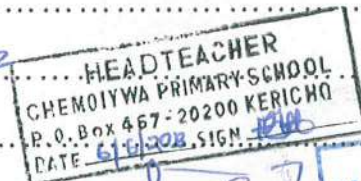 HEADTEACHER
CHEMOIYWA PRIMARY SCHOOL
P.O. Box 467-20200 KERICHO
DATE SIGN